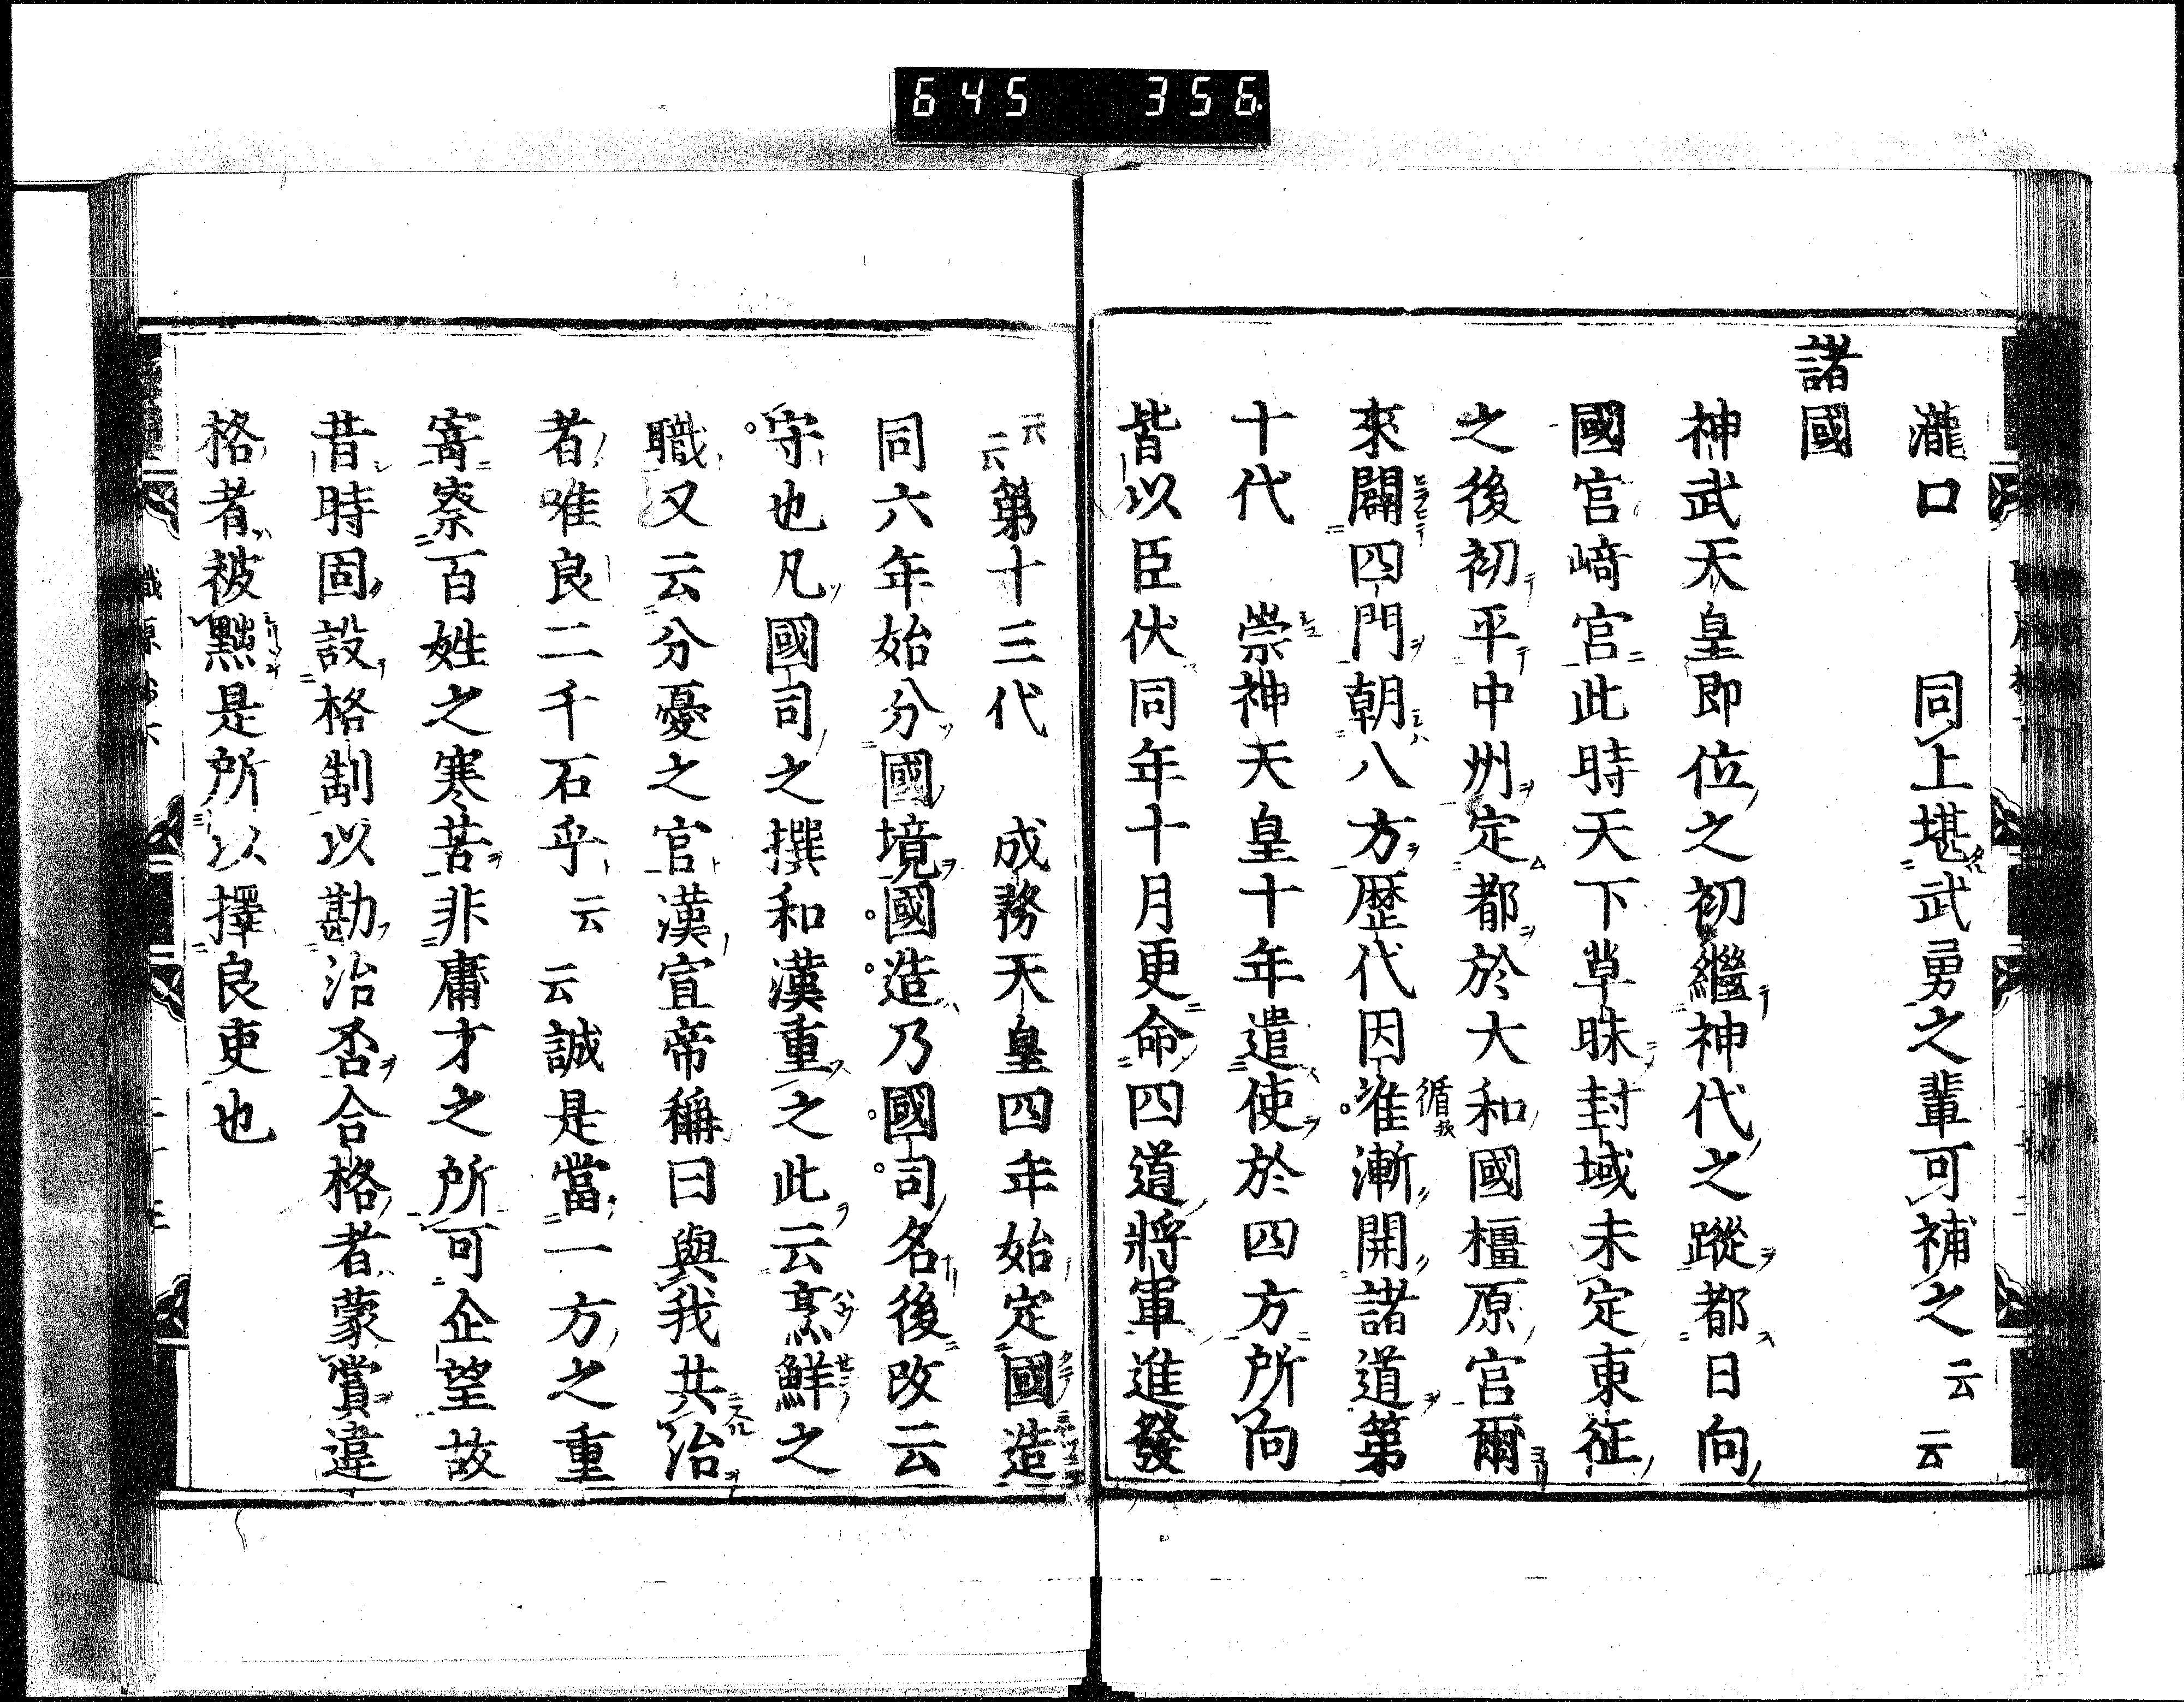 645 356
瀧口 同上堪武勇之輩可補之云云
諸國
神武天皇即位之初繼神代之蹤都日向
國宮﨑宮此時天下草昧封域未定東征
之後初平中州定都於大和國橿原宮爾
來闢四門朝八方歷代因准漸開諸道第
十代 崇神天皇十年遣使於四方所向
皆以臣伏同年十月更命四道將軍進發
云云第十三代 成務天皇四年始定國造
同六年始分國境國造乃國司名後改云
守也凡國司之撰和漢重之此云烹鮮之
職又云分憂之官漢宣帝稱曰與我共治
者唯良二千石乎云云誠是當一方之重
寄察百姓之寒苦非庸才之所可企望故
昔時固設格制以勘治否合格者蒙賞違
格者被黜是所以擇良吏也